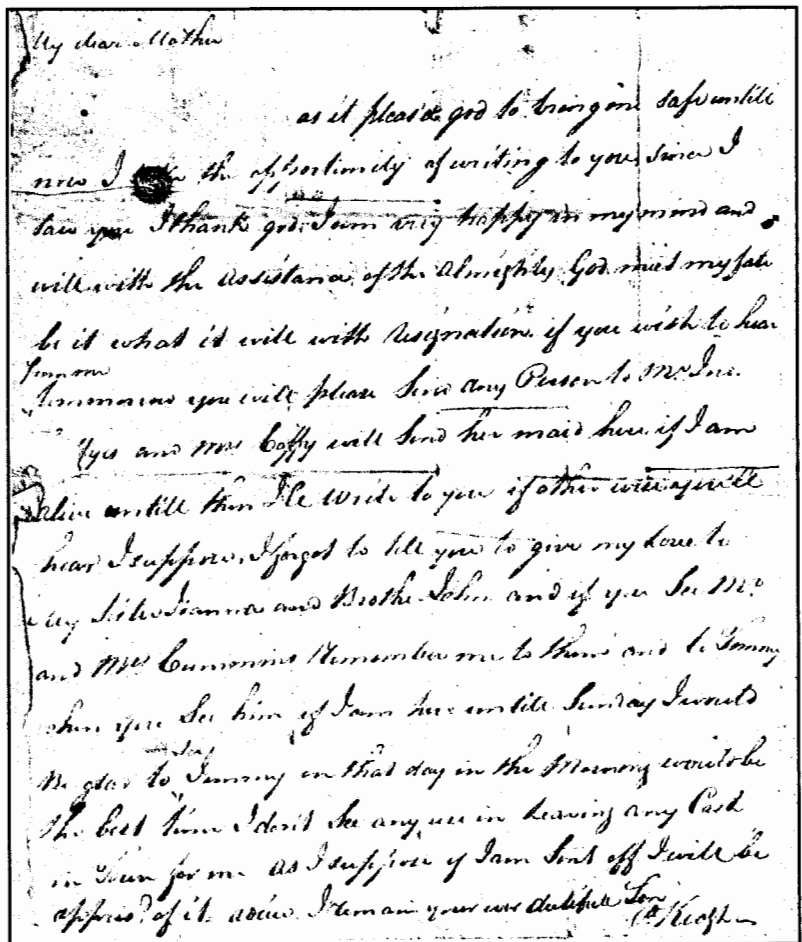 My dear Mother
as it pleased god to bring me safe untill
now I the opportunity of writing to you, since I
saw you I thank god I am very happy in my mind and
will with the assistance of the Almighty God meet my fate
be it what it will with resignation. if you wish to hear
from me
tommorrow you will please send any Person to Mr
and Mrs Coffy will send her maid here if I am
alive untill then Ile write to you if other wise you'll
hear I suppose. I forgot to tell you to give my love to
my Sister Joanna and Brother John and if you See Mr
and Mrs Cummins Remember me to them and to Tommy
when you See him if I am here untill Sunday I would
see
be glad to Jemmy in that day in the Morning would be
the best time I don't See any use in leaving any Cash
in Town for me as I suppose if I am Sent off I will be
apprisd of it. adieu I remain your ever dutifull Son
Keogh